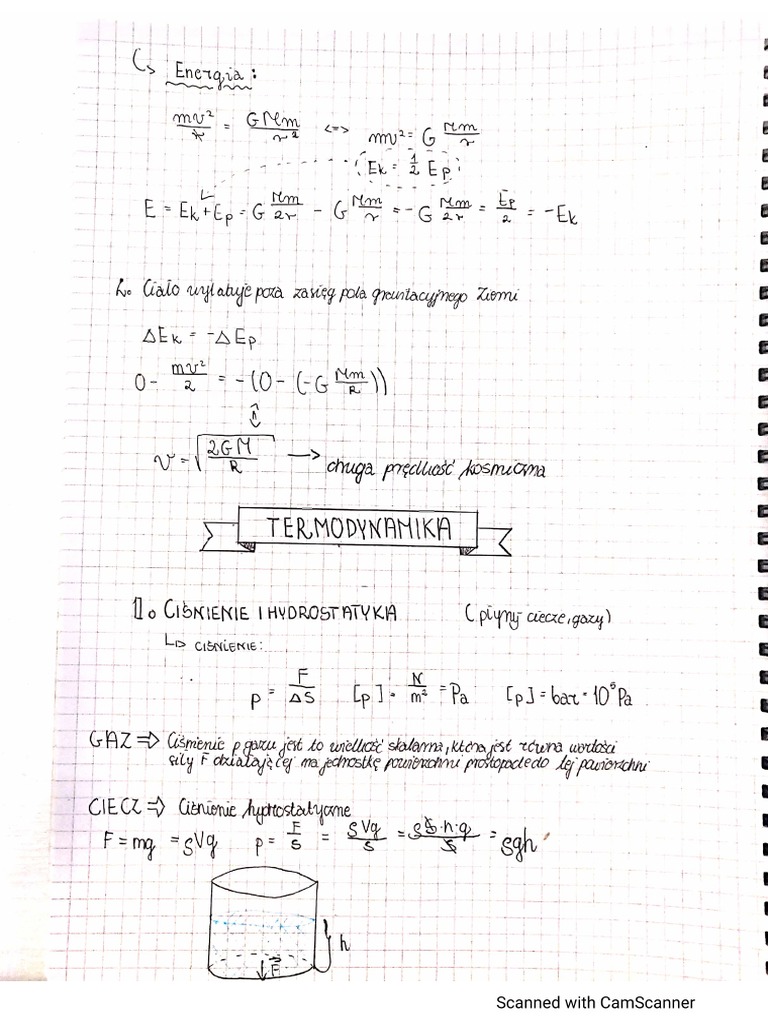 ↳ Energia:
mv²/r = GMm/r² <=> mv² = G Mm/r
Ek = 1/2 Ep
E = Ek + Ep = G Mm/2r - G Mm/r = -G Mm/2r = Ep/2 = -Ek
2. Ciało wylatuje poza zasięg pola grawitacyjnego Ziemi
ΔEk = -ΔEp
0 - mv²/2 = -(0 - (-G Mm/R))
⇕
v = √(2GM/R) → druga prędkość kosmiczna
TERMODYNAMIKA
1. CIŚNIENIE I HYDROSTATYKA (płyny ciecze, gazy)
↳ CIŚNIENIE:
p = F/ΔS [p] = N/m² = Pa [p] = bar = 10⁵ Pa
GAZ ⇒ Ciśnienie p gazu jest to wielkość skalarna, która jest równa wartości
siły F działającej na jednostkę powierzchni prostopadle do tej powierzchni
CIECZ ⇒ Ciśnienie hydrostatyczne
F = mg = ρVg p = F/S = ρVg/S = ρS·h·g/S = ρgh
h
F
Scanned with CamScanner